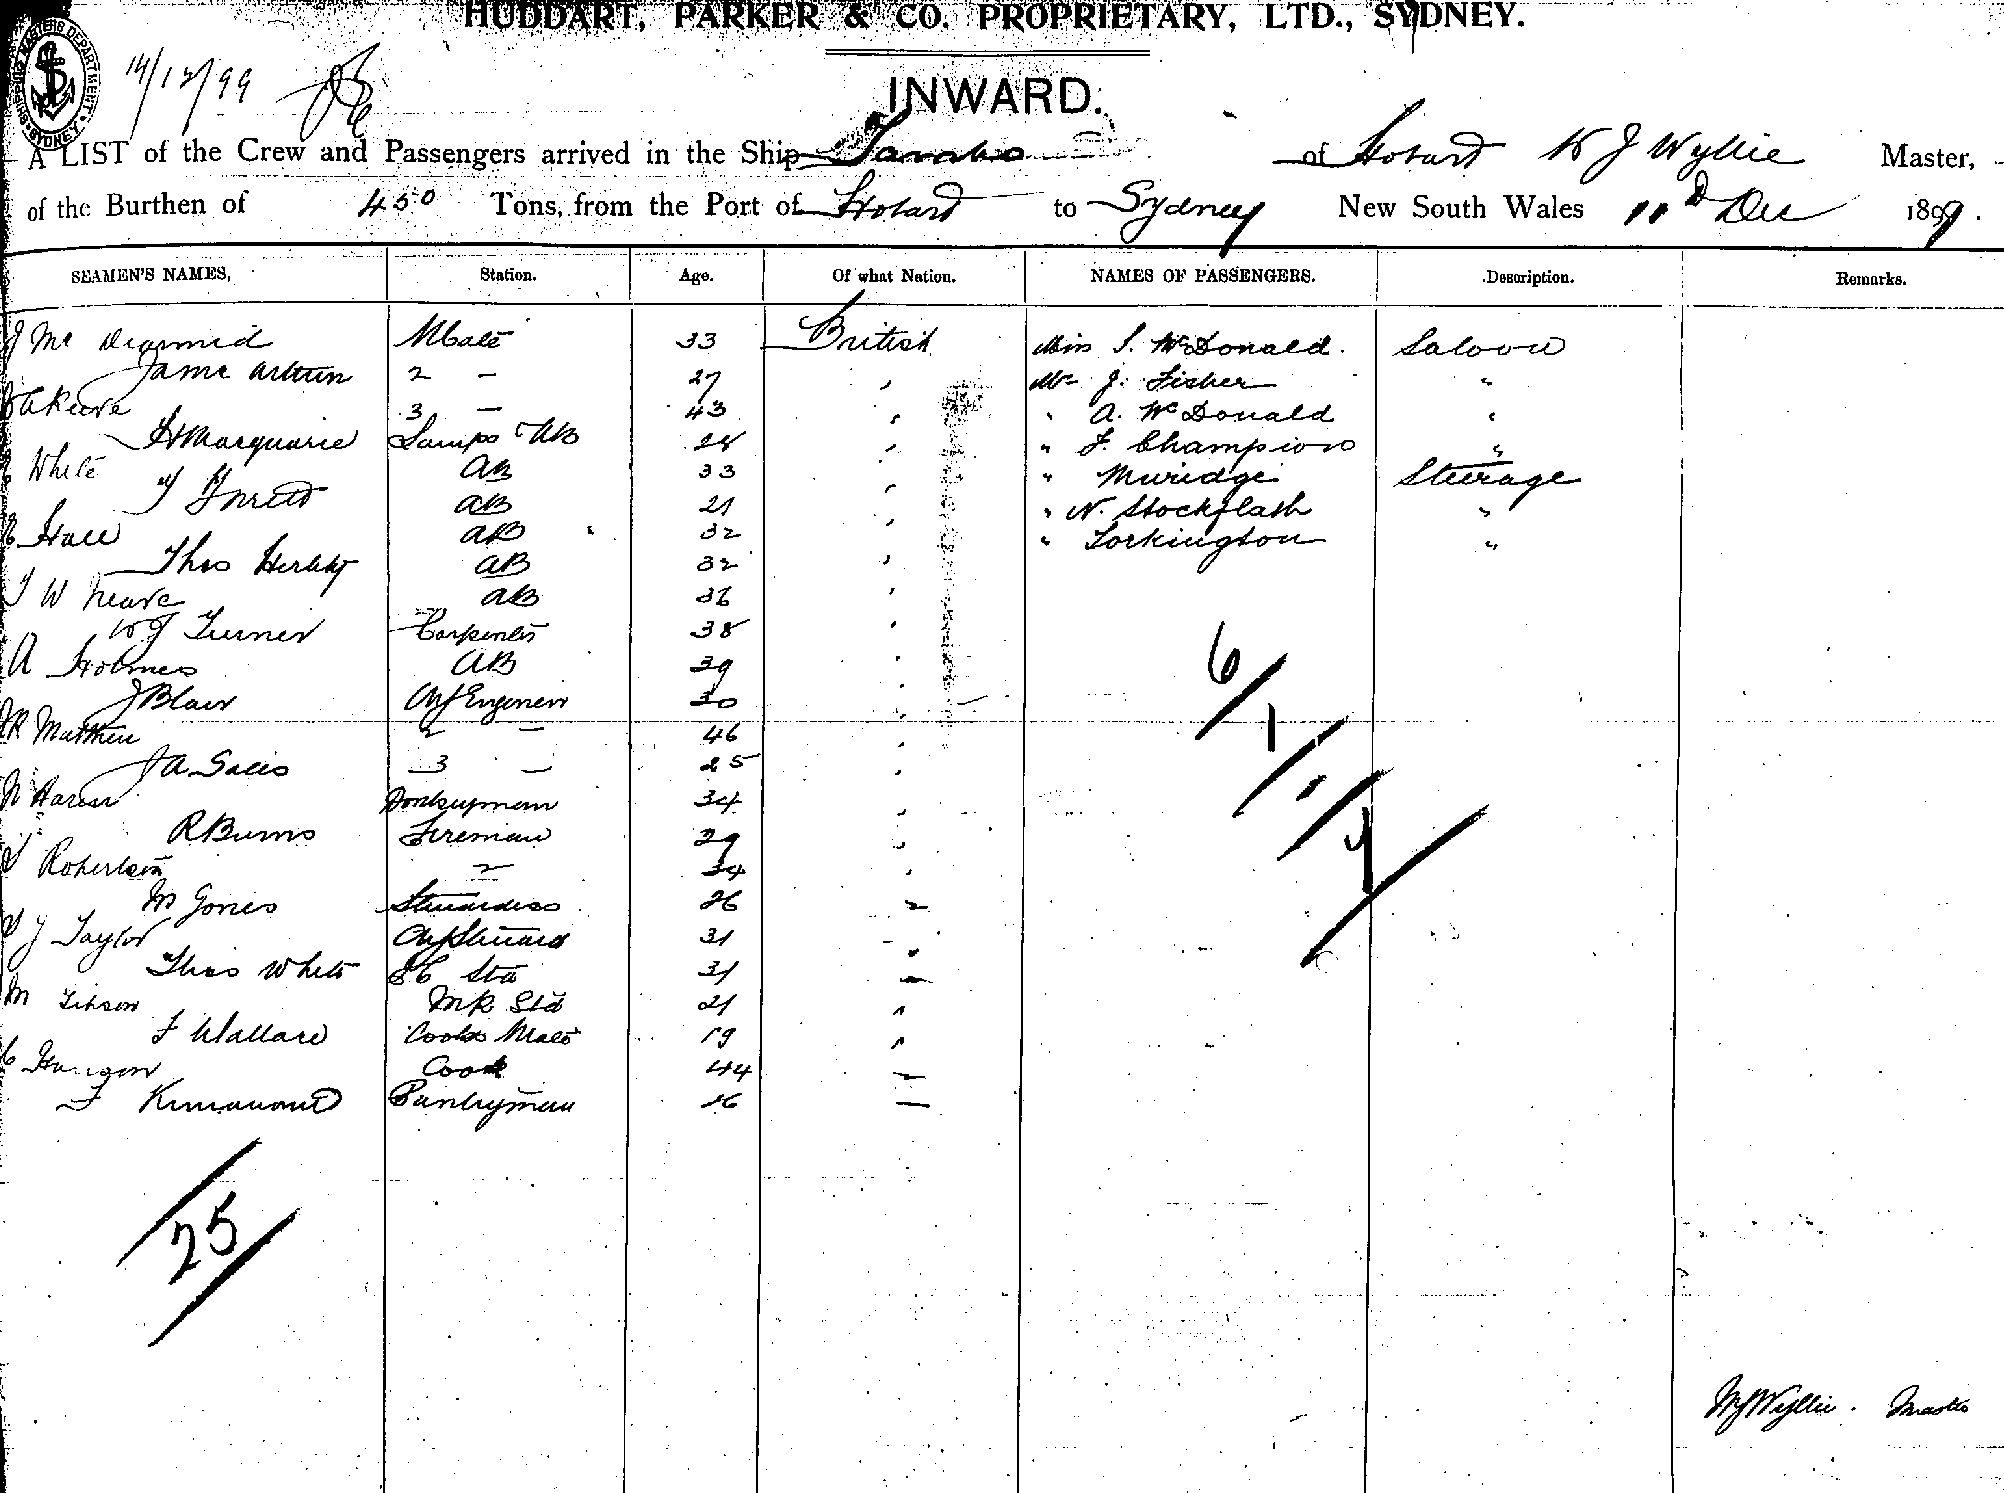 HUDDART, PARKER & CO. PROPRIETARY, LTD., SYDNEY.
SHIPPING MASTER'S DEPARTMENT SYDNEY
14/12/99
INWARD.
A LIST of the Crew and Passengers arrived in the Ship of Hobart W J Wyllie Master,
of the Burthen of 450 Tons, from the Port of Hobart to Sydney New South Wales 11th Dec 1899.
SEAMEN'S NAMES, Station. Age. Of what Nation. NAMES OF PASSENGERS. Description. Remarks.
J Mc Diarmid Mate 33 British Miss S. McDonald. Saloon
James Arthur 2 - 27 , Mr J. Fisher "
3 - 43 , " A. McDonald "
H Macquarie Lamps AB 28 , " F. Champion "
White AB 33 , " Muridge Steerage
AB 21 , " N. Stockflash "
Hall AB 32 , " Torkington "
Thos AB 32 ,
W Neave AB 36 ,
W J Turner Carpenter 38 ,
A Holmes AB 39 ,
J Blair Chf Engineer 30 ,
Mathew 2 - 46 ,
J A Sales 3 - 25 ,
Donkeyman 34 ,
R Burns Fireman 29 ,
Robertson " 34 ,
M Jones Stewardess 26 "
J Taylor Chf Steward 31 "
Thos White Std 31 "
M Gibson MR Std 21 "
F Wallace Cooks Mate 19 "
Cook 44 "
F Pantryman 16 "
6/1/1/
25
W J Wyllie. Master